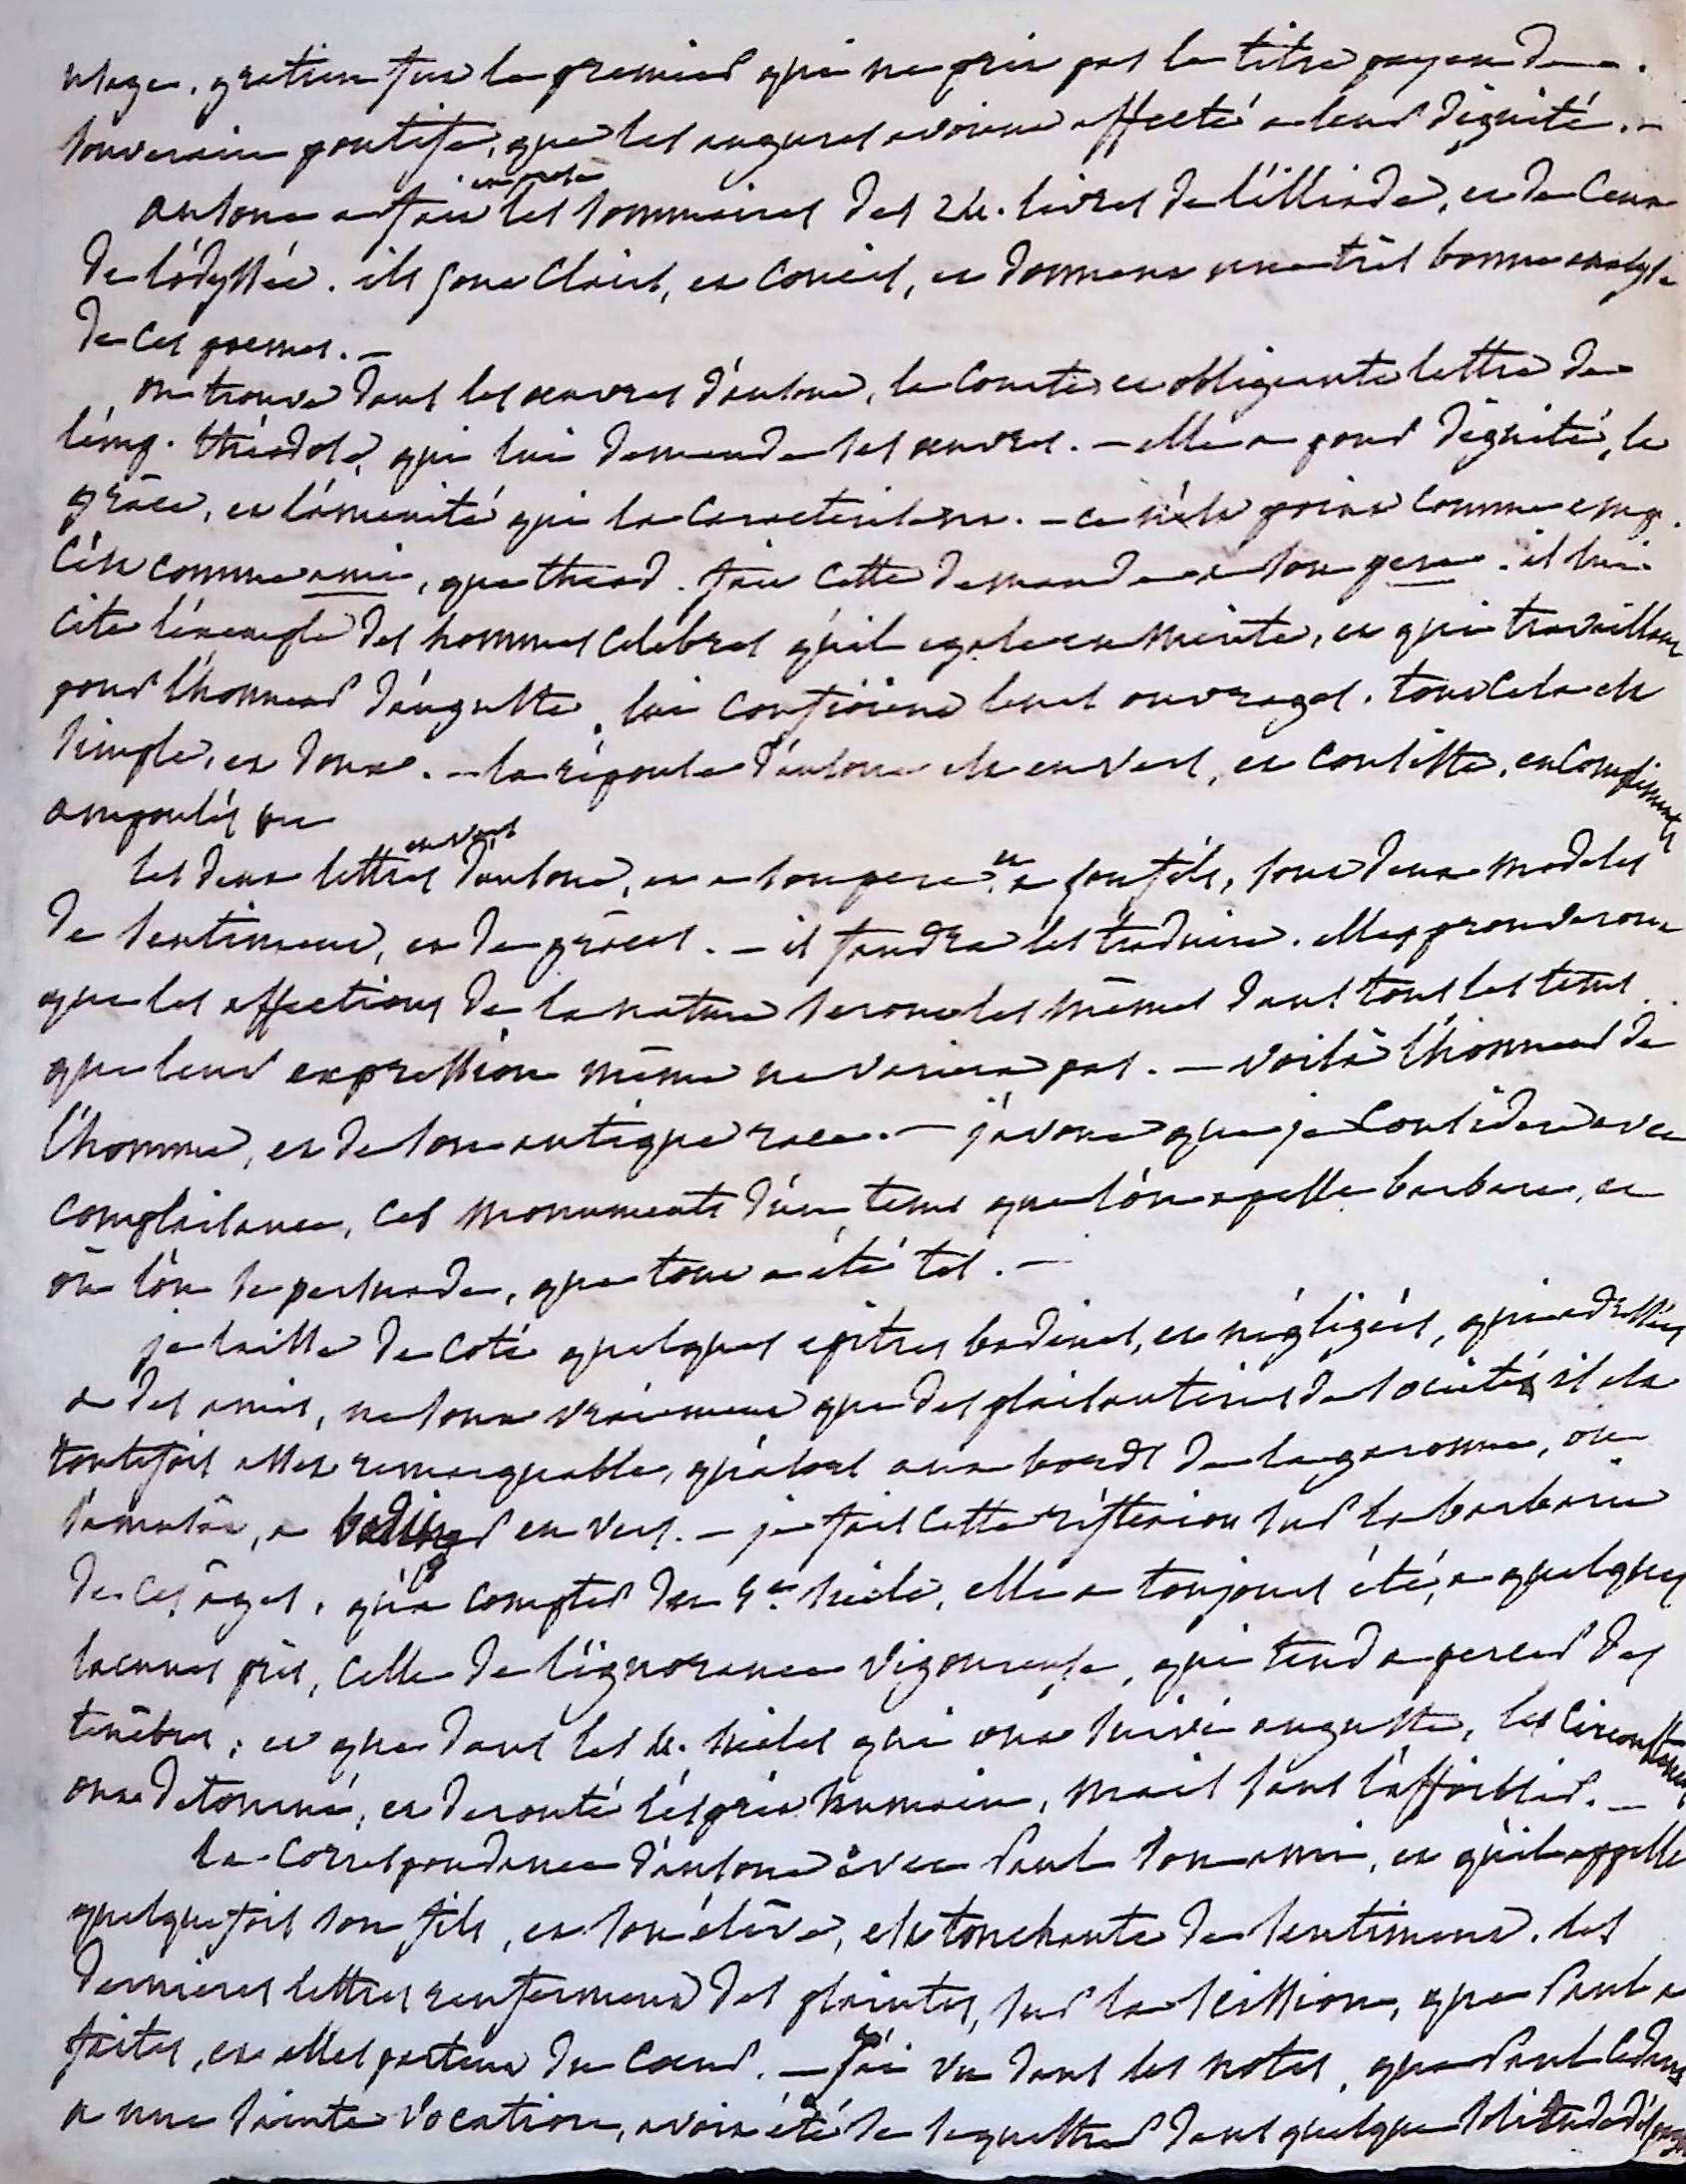 usage. gratien fut le premier qui ne prit pas le titre payen de
souverain pontife, que les augures avoient affecté a leur dignité. —
ausone a fait en prose les sommaires des 24. livres de l'illiade, et de ceux
de l'odyssée. ils sont clairs, et concis, et donnent une très bonne analyse
de ces poemes. —
on trouve dans les oeuvres d'ausone, la courte et obligeante lettre de
l'emp. théodose, qui lui demande ses oeuvres. — elle a pour dignité, la
grâce, et l'aménité qui la caractérisent. — ce n'est point comme emp.
c'est comme ami, que théod. fait cette demande a son pere. il lui
cite l'exemple des hommes celebres qu'il egale en merite, et qui travaillant
pour l'honneur d'auguste, lui confioient leurs ouvrages. tout cela est
simple, et doux. — la réponse d'ausone est en vers, et consiste, en complimens
ampoulés
les deux lettres en vers d'ausone, et a son pere, et a son fils, sont deux modeles
de sentiment, et de grâces. — il faudra les traduire. elles prouveront
que les affections de la nature seront les mêmes dans tous les tems.
que leur expression même ne variera pas. — voilà l'honneur de
l'homme, et de son antique race. — j'avoue que je considere avec
complaisance, ces monuments d'un tems que l'on apelle barbare, et
où l'on se persuade, que tout a été tel. —
je laisse de coté quelques epitres badines, et négligées, qui adressées
a des amis, ne sont vraiment que des plaisanteries de societés il est
toutefois assez remarquable, qu'alors aux bords de la garonne, on
s'amusât, a badiner en vers. — je fais cette réflexion sur la barbarie
de ces âges, qu'a compter du 5e. siècle, elle a toujours été, a quelques
lacunes près, celle de l'ignorance vigoureuse, qui tend a percer des
tenèbres; et que dans les 4. siecles qui ont suivi auguste, les circonstances
ont detourné, et derouté l'esprit humain, mais sans l'affoiblir. —
la correspondance d'ausone avec Paul son ami, et qu'il appelle
quelquefois son fils, et son élève, est touchante de sentiment. les
dernieres lettres renferment des plaintes, sur la scission, que Paul a
faites, et elles partent du coeur. — j'ai vu dans les notes, que Paul cedant
a une sainte vocation, avoit été se sequestrer dans quelque solitude d'espagne